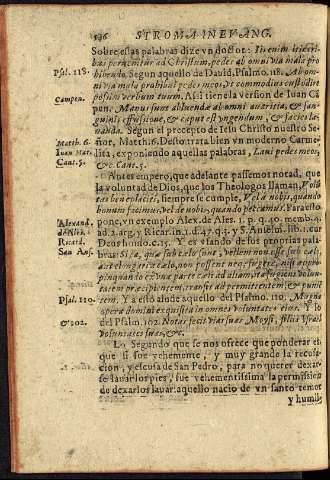 596 STROMA IN EVANG.
Sobre essas palabras dize vn doctor: Iis enim itineri-
bus peruenitur ad Christum, pedes ab omni via mala pro
hibendo. Segun aquello de Dauid, Psalmo. 118. Ab om-
Psal. 118.
ni via mala prohibui pedes meos, vt commodius custodire
possim verbum tuum. Assi tiene la version de Iuan Cã
Campen.
pen. Manus sunt abluendæ ab omni auaritia, & san-
guinis effusione, & caput est vngendum, & facies la-
uanda. Segun el precepto de Iesu Christo nuestro Se-
Matth. 6.
ñor, Matth. 6. Desto trata bien vn moderno Carme-
Iuan Mar.
lita, exponiendo aquellas palabras, Laui pedes meos,
Cant. 5.
&c. Cant. 5.
Antes empero, que adelante passemos notad, que
la voluntad de Dios, que los Theologos llaman, Volũ
tas beneplaciti, siempre se cumple, Vel à nobis, quando
bonum facimus, vel de nobis, quando peccamus. Para esto
Alexand.
pone, vn exemplo Alex. de Ales. 1. p. q. 40. memb. 4.
de Ales.
ad. 2. arg. y Ricar. in. 1. d. 47. q. 2. y S. Anselm. lib. 1. cur
Ricard.
Deus homo. c. 15. Y es vsando de sus proprias pala-
San Ans.
bras: Si ea, quæ sub cælo sunt, vellent non esse sub cælo,
aut elongari à cælo, non possent nec
pinquando cœlo ex parte
tatem præcipientem, transit ad permittentem & punien
tem. Y a esto alude aquello del Psalmo. 110. Magna
Psal. 110.
opera domini exquisita in omnes voluntates eius. Y lo
& 102.
del Psalm. 102. Notas fecit vias suas Moysi, filiis Israel
voluntates suas, &c.
Lo Segundo que se nos ofrece que ponderar es
que si fue vehemente, y muy grande la recusa-
cion, y escusa de San Pedro, para no querer dexar-
se lauar los pies, fue vehementissima la permission
de dexarlos lauar: aquello nacio de vn santo temor
y humil-